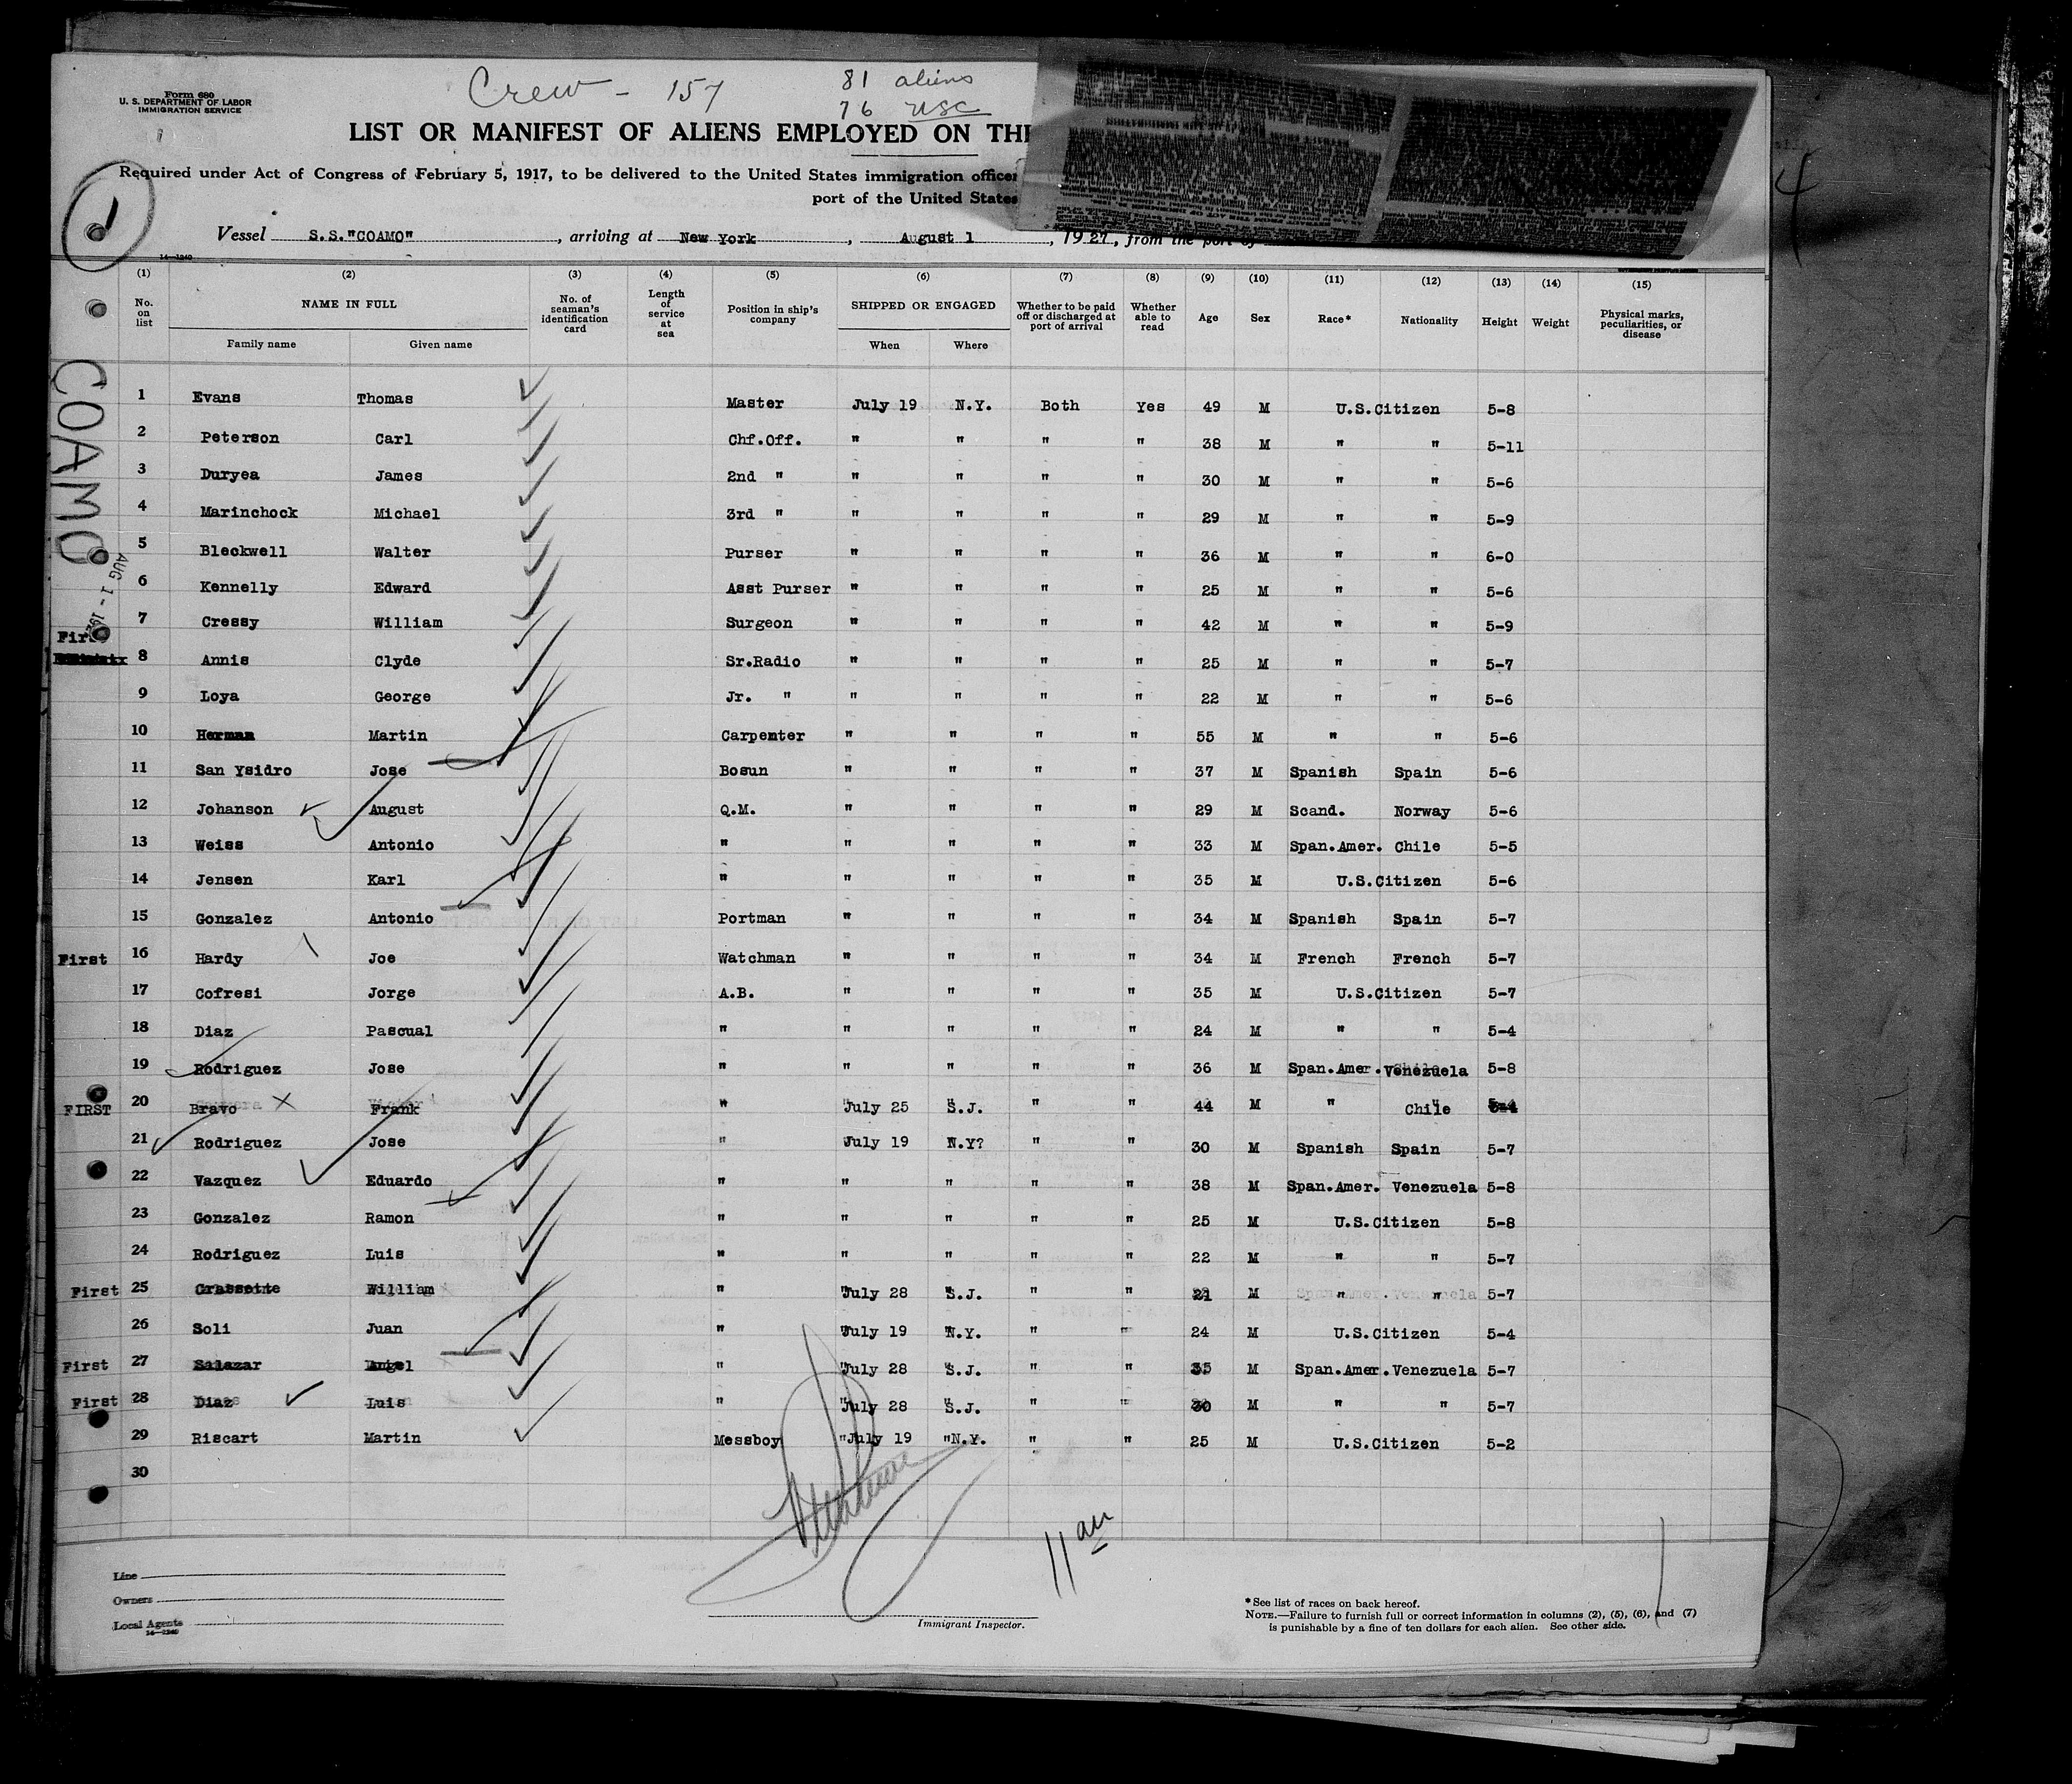 Form 680
U. S. DEPARTMENT OF LABOR
IMMIGRATION SERVICE
Crew - 157
81 aliens
76 USC
LIST OR MANIFEST OF ALIENS EMPLOYED ON THE
Required under Act of Congress of February 5, 1917, to be delivered to the United States immigration officer
port of the United States
1
4
Vessel S.S."COAMO", arriving at New York, August 1, 1927, from the port of
14-1240
(1) (2) (3) (4) (5) (6) (7) (8) (9) (10) (11) (12) (13) (14) (15)
No. on list NAME IN FULL No. of seaman's identification card Length of service at sea Position in ship's company SHIPPED OR ENGAGED Whether to be paid off or discharged at port of arrival Whether able to read Age Sex Race* Nationality Height Weight Physical marks, peculiarities, or disease
Family name Given name When Where
COAMO
AUG 1 - 192
1 Evans Thomas Master July 19 N.Y. Both Yes 49 M U.S.Citizen 5-8
2 Peterson Carl Chf.Off. " " " " 38 M " " 5-11
3 Duryea James 2nd " " " " " 30 M " " 5-6
4 Marinchock Michael 3rd " " " " " 29 M " " 5-9
5 Bleckwell Walter Purser " " " " 36 M " " 6-0
6 Kennelly Edward Asst Purser " " " " 25 M " " 5-6
7 Cressy William Surgeon " " " " 42 M " " 5-9
First
8 Annis Clyde Sr.Radio " " " " 25 M " " 5-7
9 Loya George Jr. " " " " " 22 M " " 5-6
10 Herman Martin Carpenter " " " " 55 M " " 5-6
11 San Ysidro Jose Bosun " " " " 37 M Spanish Spain 5-6
12 Johanson August Q.M. " " " " 29 M Scand. Norway 5-6
13 Weiss Antonio " " " " " 33 M Span.Amer. Chile 5-5
14 Jensen Karl " " " " " 35 M U.S.Citizen 5-6
15 Gonzalez Antonio Portman " " " " 34 M Spanish Spain 5-7
First 16 Hardy Joe Watchman " " " " 34 M French French 5-7
17 Cofresi Jorge A.B. " " " " 35 M U.S.Citizen 5-7
18 Diaz Pascual " " " " " 24 M " " 5-4
19 Rodriguez Jose " " " " " 36 M Span.Amer. Venezuela 5-8
FIRST 20 Bravo X Frank " July 25 S.J. " " 44 M " Chile 5-4
21 Rodriguez Jose " July 19 N.Y? " " 30 M Spanish Spain 5-7
22 Vazquez Eduardo " " " " " 38 M Span.Amer. Venezuela 5-8
23 Gonzalez Ramon " " " " " 25 M U.S.Citizen 5-8
24 Rodriguez Luis " " " " " 22 M " " 5-7
First 25 Crassette William " July 28 S.J. " " 21 M " " 5-7
26 Soli Juan " July 19 N.Y. " " 24 M U.S.Citizen 5-4
First 27 Salazar Angel " July 28 S.J. " " 35 M Span.Amer. Venezuela 5-7
First 28 Diaz Luis " July 28 S.J. " " 30 M " " 5-7
29 Riscart Martin Messboy "July 19 "N.Y. " " 25 M U.S.Citizen 5-2
30
11 am
Line
Owners
Local Agents
14-1240
Immigrant Inspector.
*See list of races on back hereof.
NOTE.—Failure to furnish full or correct information in columns (2), (5), (6), and (7)
is punishable by a fine of ten dollars for each alien. See other side.